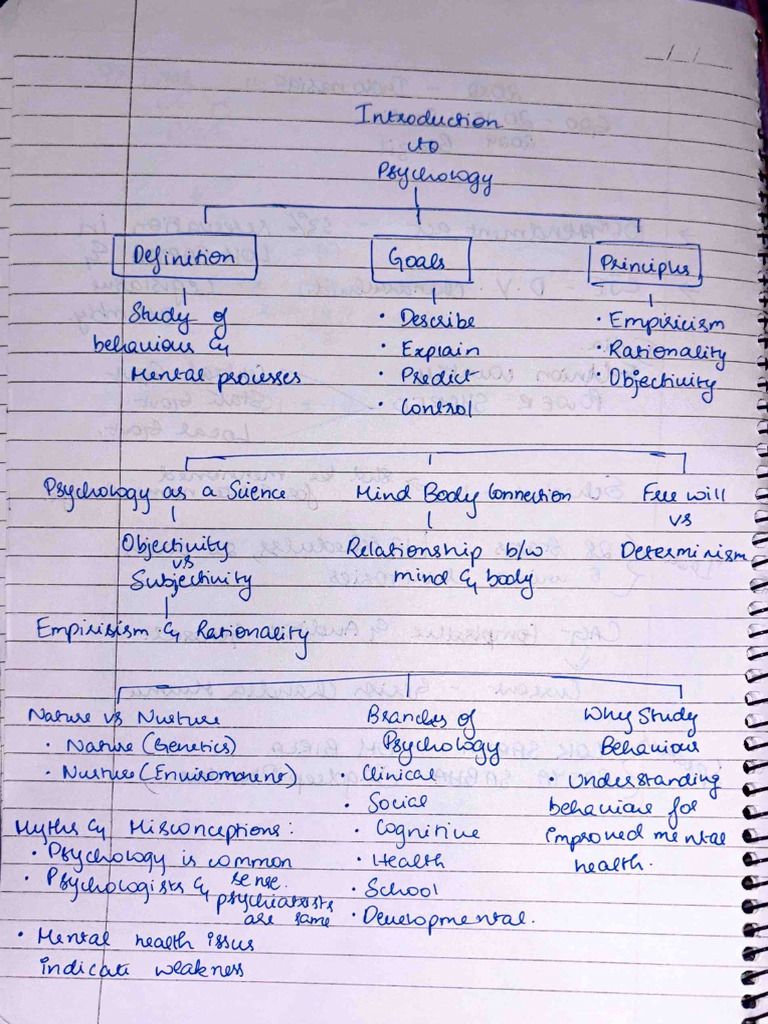 Introduction
to
Psychology
Definition
Study of
behaviour &
Mental processes
Goals
• Describe
• Explain
• Predict
• Control
Principles
• Empiricism
• Rationality
Objectivity
Psychology as a Science
Objectivity
vs
Subjectivity
Empirisism & Rationality
Mind Body Connection
Relationship b/w
mind & body
Free will
vs
Determinism
Nature vs Nurture
• Nature (Genetics)
• Nurture (Enviroment)
Myths & Misconceptions:
• Psychology is common
sense.
• Psychologists &
psychiatrists
are same
• Mental health issus
indicate weakness
Branches of
Psychology
• Clinical
• Social
• Cognitive
• Health
• School
• Developmental.
Why Study
Behaviour
• Understanding
behaviour for
improved mental
health.